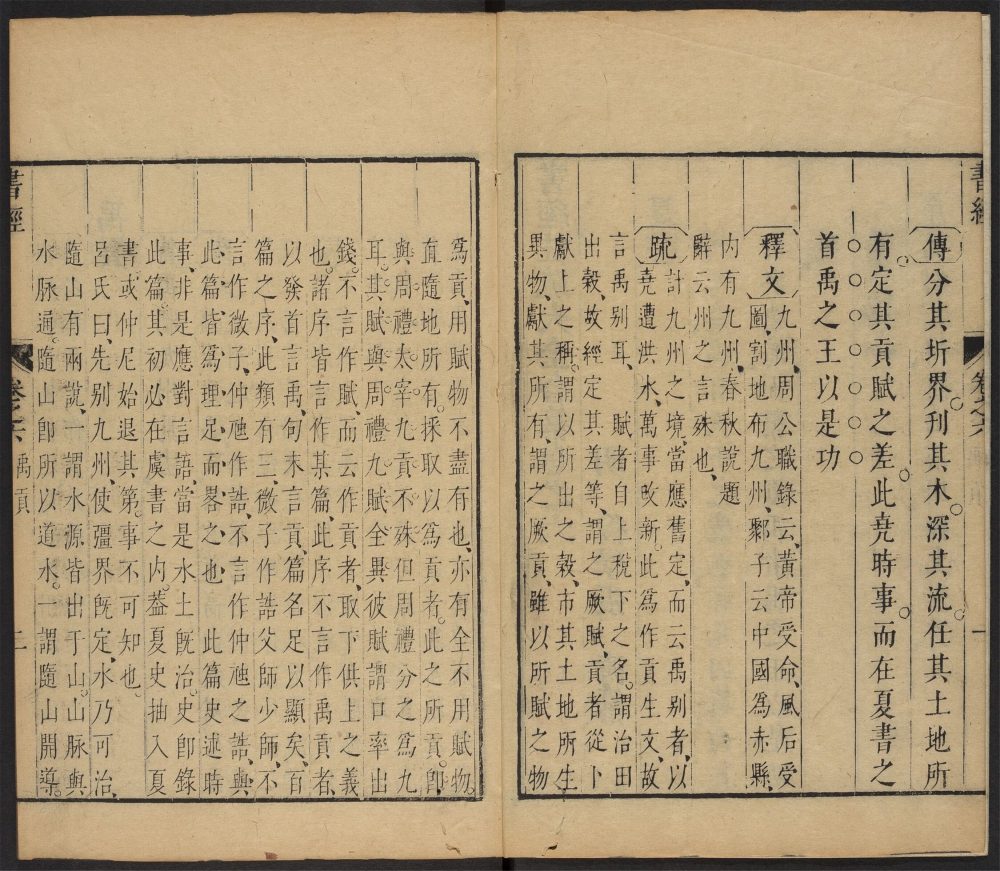 書經
卷之六
一
傳分其圻界刊其木。深其流任其土地所
有。定其貢賦之差。此堯時事。而在夏書之
首禹之王以是功
釋文九州、周公職錄云、黃帝受命、風后受
圖、割地布九州、鄹子云中國爲赤縣、
內有九州、春秋說題
辭云州之言殊也、
疏計九州之境、當應舊定、而云禹別者、以
堯遭洪水、萬事改新。此爲作貢生文、故
言禹別耳、 賦者自上稅下之名。謂治田
出穀、故經定其差等、謂之厥賦、貢者從下
獻上之稱。謂以所出之穀、市其土地所生
異物、獻其所有、謂之厥貢、雖以所賦之物
爲貢、用賦物不盡有也、亦有全不用賦物。
直隨地所有。採取以爲貢者。此之所貢。卽
與周禮太宰九貢不殊但周禮分之爲九
耳。其賦與周禮九賦全異彼賦謂口率出
錢。不言作賦、而云作貢者、取下供上之義
也。諸序皆言作某篇、此序不言作禹貢者、
以發首言禹、句末言貢、篇名足以顯矣、百
篇之序、此類有三、微子作誥父師少師、不
言作微子、仲虺作誥、不言作仲虺之誥、與
此篇、皆爲理足而畧之也、 此篇史述時
事、非是應對言語、當是水土旣治。史卽錄
此篇。其初必在虞書之內、葢夏史抽入夏
書或仲尼始退其第。事不可知也。
呂氏曰、先別九州、使疆界旣定、水乃可治、
隨山有兩說、一謂水源皆出于山。山脉與
水脉通。隨山卽所以道水。一謂隨山開導。
書經
卷之六
禹貢
二